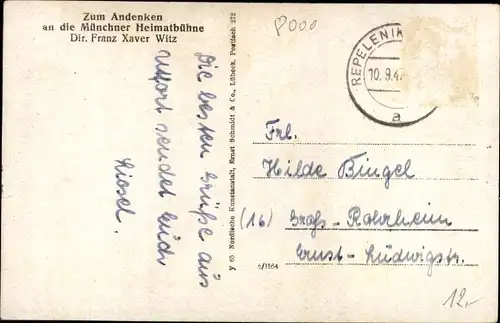 Zum Andenken
an die Münchner Heimatbühne
Dir. Franz Xaver Witz
Die besten Grüße aus
sendet Euch
Liesel.
Y 65 Nordische Kunstanstalt, Ernst Schmidt & Co., Lübeck, Postfach 272
10.9.4
a
Frl.
Hilde Bingel
(16) Groß-Rohrheim
Ernst-Ludwigstr.
12.-